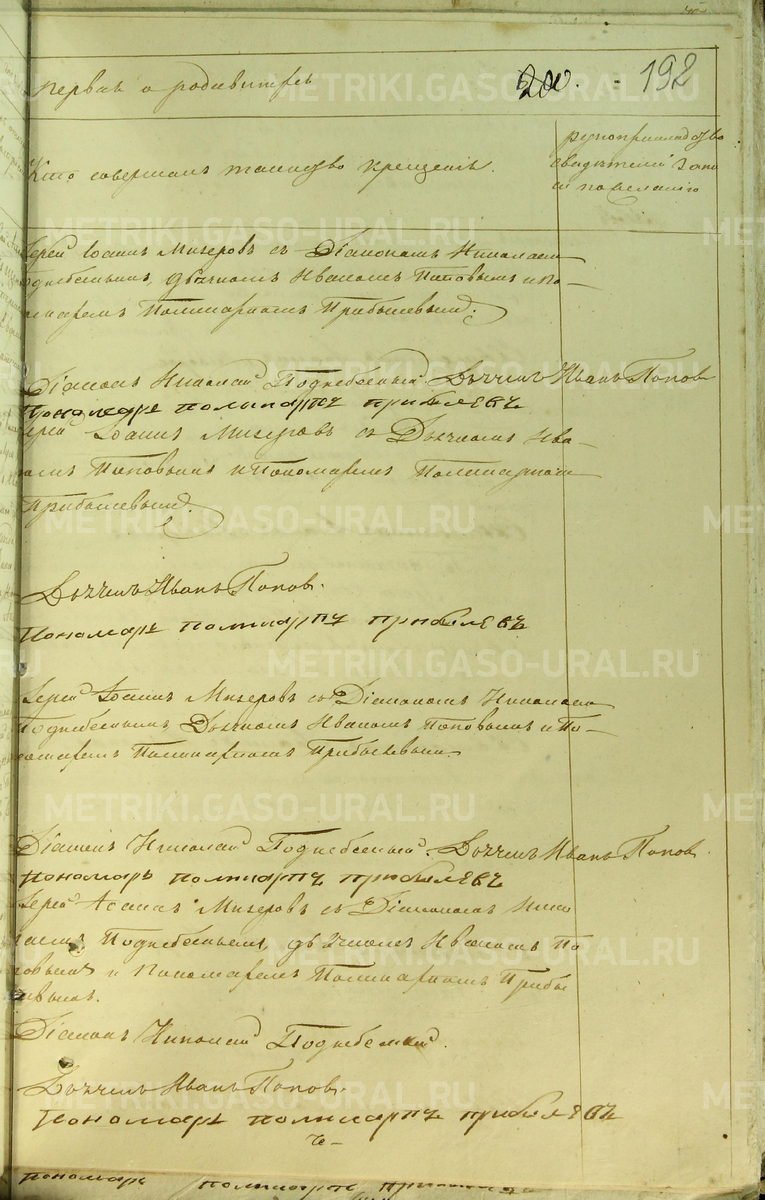 первая о родившихся 200. - 192
Кто совершалъ таинство крещенія.
рукоприкладство
свидѣтелей запи
си по желанію
METRIKI.GASO-URAL.RU
Іерей Іоаннъ Мизеровъ съ Діакономъ Николаемъ
Поднебеснымъ, дьячкомъ Иваномъ Поповымъ и По-
номаремъ Поликарпомъ Прибылевымъ.
Діаконъ Николай Поднебесный. Дьячекъ Иванъ Попов
Пономарь поликарпъ прибылевъ
Іерей Іоаннъ Мизеровъ съ Дьячкомъ Ива-
номъ Поповымъ и Пономаремъ Поликарпомъ
Прибылевымъ.
Дьячекъ Иванъ Попов.
Пономарь поликарпъ прибылевъ
Іерей Іоаннъ Мизеровъ съ Діакономъ Николаемъ
Поднебеснымъ, Дьячкомъ Иваномъ Поповымъ и По-
номаремъ Поликарпомъ Прибылевымъ.
Діаконъ Николай Поднебесный. Дьячекъ Иванъ Попов.
пономарь поликарпъ прибылевъ
Іерей Іоаннъ Мизеровъ съ Діакономъ Нико
лаемъ Поднебеснымъ, дьячкомъ Иваномъ По
повымъ и Пономаремъ Поликарпомъ Прибы
левымъ.
Діаконъ Николай Поднебесный.
Дьячекъ Иванъ Попов.
пономарь поликарпъ прибылевъ
пономарь поликарпъ